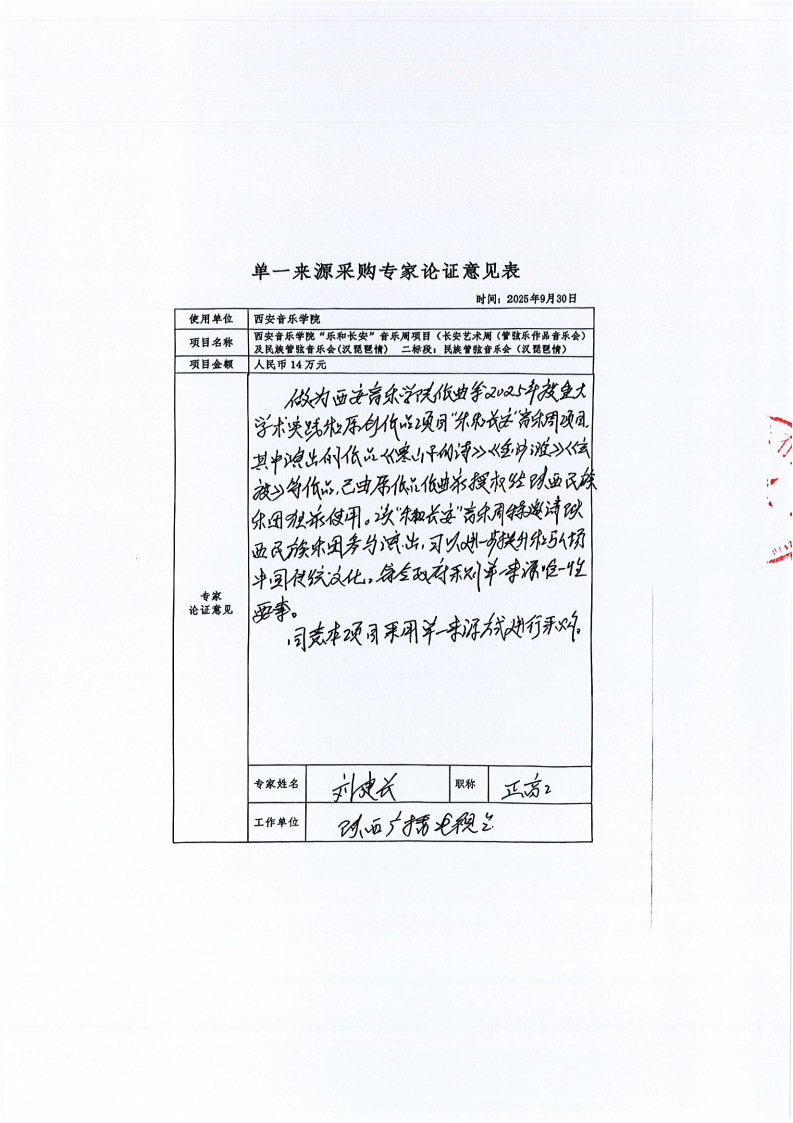 单一来源采购专家论证意见表
时间：2025年9月30日
使用单位 西安音乐学院
项目名称 西安音乐学院“乐和长安”音乐周项目（长安艺术周（管弦乐作品音乐会）
及民族管弦音乐会(汉琵琶情) 二标段：民族管弦音乐会（汉琵琶情）
项目金额 人民币14万元
专家
论证意见
做为西安音乐学院作曲系2025年度重大
学术实践和原创作品项目“乐和长安”音乐周项目
其中演出的作品《寒山子的诗》《金沙滩》《
》等作品，已由原作品作曲家授权给陕西民族
乐团独家使用。该“乐和长安”音乐周特邀请陕
西民族乐团参与演出，可以进一步提升和弘扬
中国传统文化。符合政府采购单一来源唯一性
要事。
同意本项目采用单一来源方式进行采购。
专家姓名 刘建长 职称 正高2
工作单位 陕西广播电视台